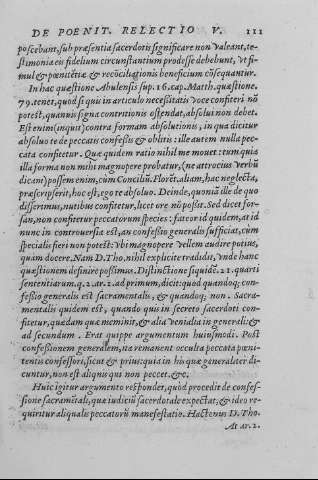 DE POENIT. RELECTIO V. 111
poscebant, sub præsentia sacerdotis significare non valeant, te-
stimonia eis fidelium circunstantium prodesse debebunt, vt si-
mul & pœnitẽtiæ & recõciliatiõis beneficium cõsequantur.
In hac quæstione Abulensis sup. 16. cap. Matth. quæstione.
79. tenet, quod si quis in articulo necessitatis voce confiteri nõ
potest, quamuis signa contritionis ostendat, absolui non debet.
Est enim (inquit) contra formam absolutionis, in qua dicitur
absoluo te de peccatis confessis & oblitis: ille autem nulla pec-
cata confitetur. Quæ quidem ratio nihil me mouet: tum quia
illa forma non mihi magnopere probatur, (ne atrocius verbũ
dicam) possem enim, cùm Conciliũ. Floret. aliam, hac neglecta,
præscripserit, hoc est, ego te absoluo. Deinde, quoniã ille de quo
disserimus, nutibus confitetur, licet ore nõ possit. Sed dicet for-
san, non confitetur peccatorum species: fateor id quidem, at id
nunc in controuersia est, an confessio generalis sufficiat, cùm
specialis fieri non potest: vbi magnopere vellem audire potius,
quàm docere. Nam D. Tho. nihil explicitè tradidit, vnde hanc
quæstionem definire possimus. Distinctione siquidẽ. 21. quarti
sententiarum. q. 2. ar. 2. ad primum, dicit: quòd quandoq; con-
fessio generalis est sacramentalis, & quandoq; non. Sacra-
mentalis quidem est, quando quis in secreto sacerdoti con-
fitetur, quædam quæ meminit, & alia venialia in generali: &
ad secundum. Erat quippe argumentum huiusmodi. Post
confessionem generalem, ita remanent occulta peccata pœni-
tentis confessori, sicut & prius: quia in his quæ generaliter di-
cuntur, non est aliquis qui non peccet. &c.
Huic igitur argumento respondet, quòd procedit de confes-
sione sacramẽtali, quæ iudiciũ sacerdotale expectat, & ideo re-
quiritur aliqualis peccatorũ manifestatio. Hactenus D. Tho.
At ar. 2.